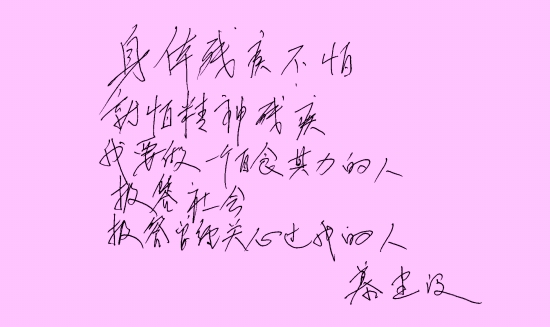 身体残疾不怕
就怕精神残疾
我要做一个自食其力的人
报答社会
报答曾经关心过我的人